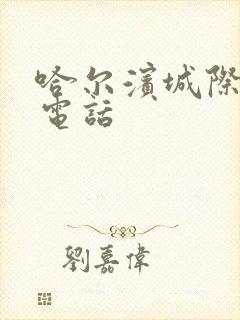 哈尔濱城際
電話
劉嘉偉